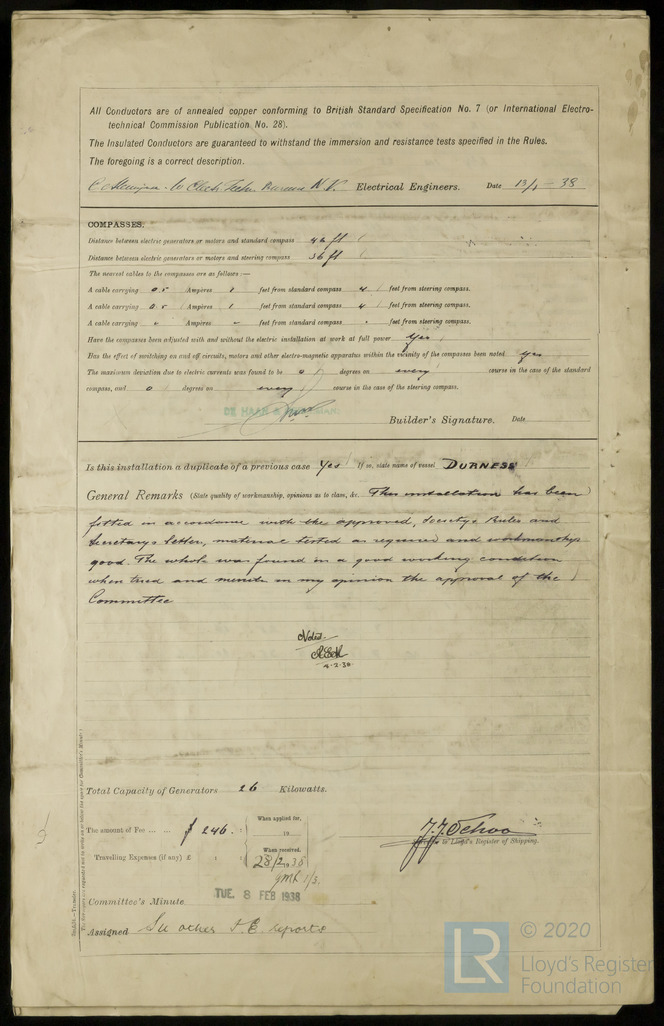 All Conductors are of annealed copper conforming to British Standard Specification No. 7 (or International Electro-
technical Commission Publication No. 28).
The Insulated Conductors are guaranteed to withstand the immersion and resistance tests specified in the Rules.
The foregoing is a correct description.
N.V. Electrical Engineers. Date 13/1 - 38
COMPASSES.
Distance between electric generators or motors and standard compass 46 ft
Distance between electric generators or motors and steering compass 36 ft
The nearest cables to the compasses are as follows:—
A cable carrying 0.5 Ampères feet from standard compass 4 feet from steering compass.
A cable carrying 0.5 Ampères feet from standard compass 4 feet from steering compass.
A cable carrying - Ampères - feet from standard compass - feet from steering compass.
Have the compasses been adjusted with and without the electric installation at work at full power Yes
Has the effect of switching on and off circuits, motors and other electro-magnetic apparatus within the vicinity of the compasses been noted Yes
The maximum deviation due to electric currents was found to be 0 degrees on every course in the case of the standard
compass, and 0 degrees on every course in the case of the steering compass.
DE HAAN &
Builder's Signature. Date
Is this installation a duplicate of a previous case Yes If so, state name of vessel DURNESS
General Remarks (State quality of workmanship, opinions as to class, &c. This installation has been
fitted in accordance with the approved, Society's Rules and
Secretary's letter, material tested as required and workmanship
good. The whole was found in a good working condition
when tried and merits in my opinion the approval of the
Committee
Noted
8.2.38
Total Capacity of Generators 26 Kilowatts.
The amount of Fee ... ... f 246. :
When applied for,
19
Travelling Expenses (if any) £ : :
When received,
28/2 1938
Surveyor to Lloyd's Register of Shipping.
Committee's Minute TUE. 8 FEB 1938
Assigned See other F.E. reports
© 2020
LR
Lloyd's Register
Foundation